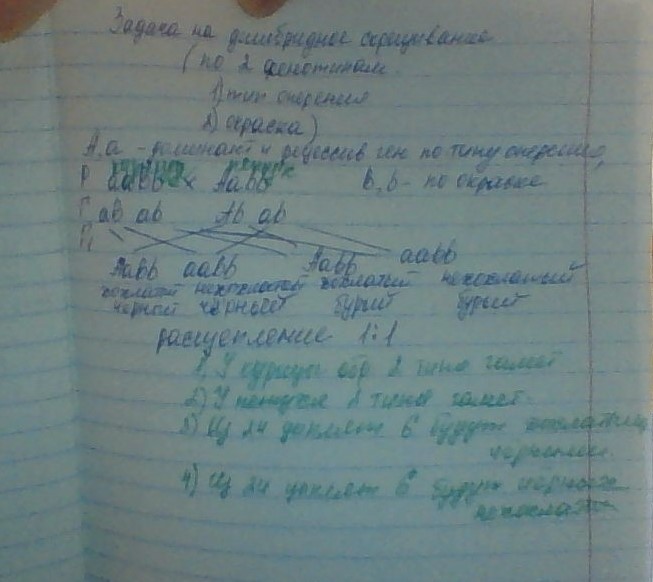 Задача на дигибридное скрещивание
(по 2 фенотипам
1) тип оперения
2) окраска)
А, а - доминант и рецессив ген по типу оперения,
Р ааВb х Ааbb В, b - по окраске
Г аВ аb Аb аb
F1
АаВb ааВb Ааbb ааbb
хохлатый нехохлатый хохлатый нехохлатый
черный чёрный бурый бурый
расщепление 1:1
1) У курицы обр. 2 типа гамет
2) У петуха 2 типа гамет
3) Из 24 цыплят 6 будут хохлатыми
черными.
4) Из 24 цыплят 6 будут